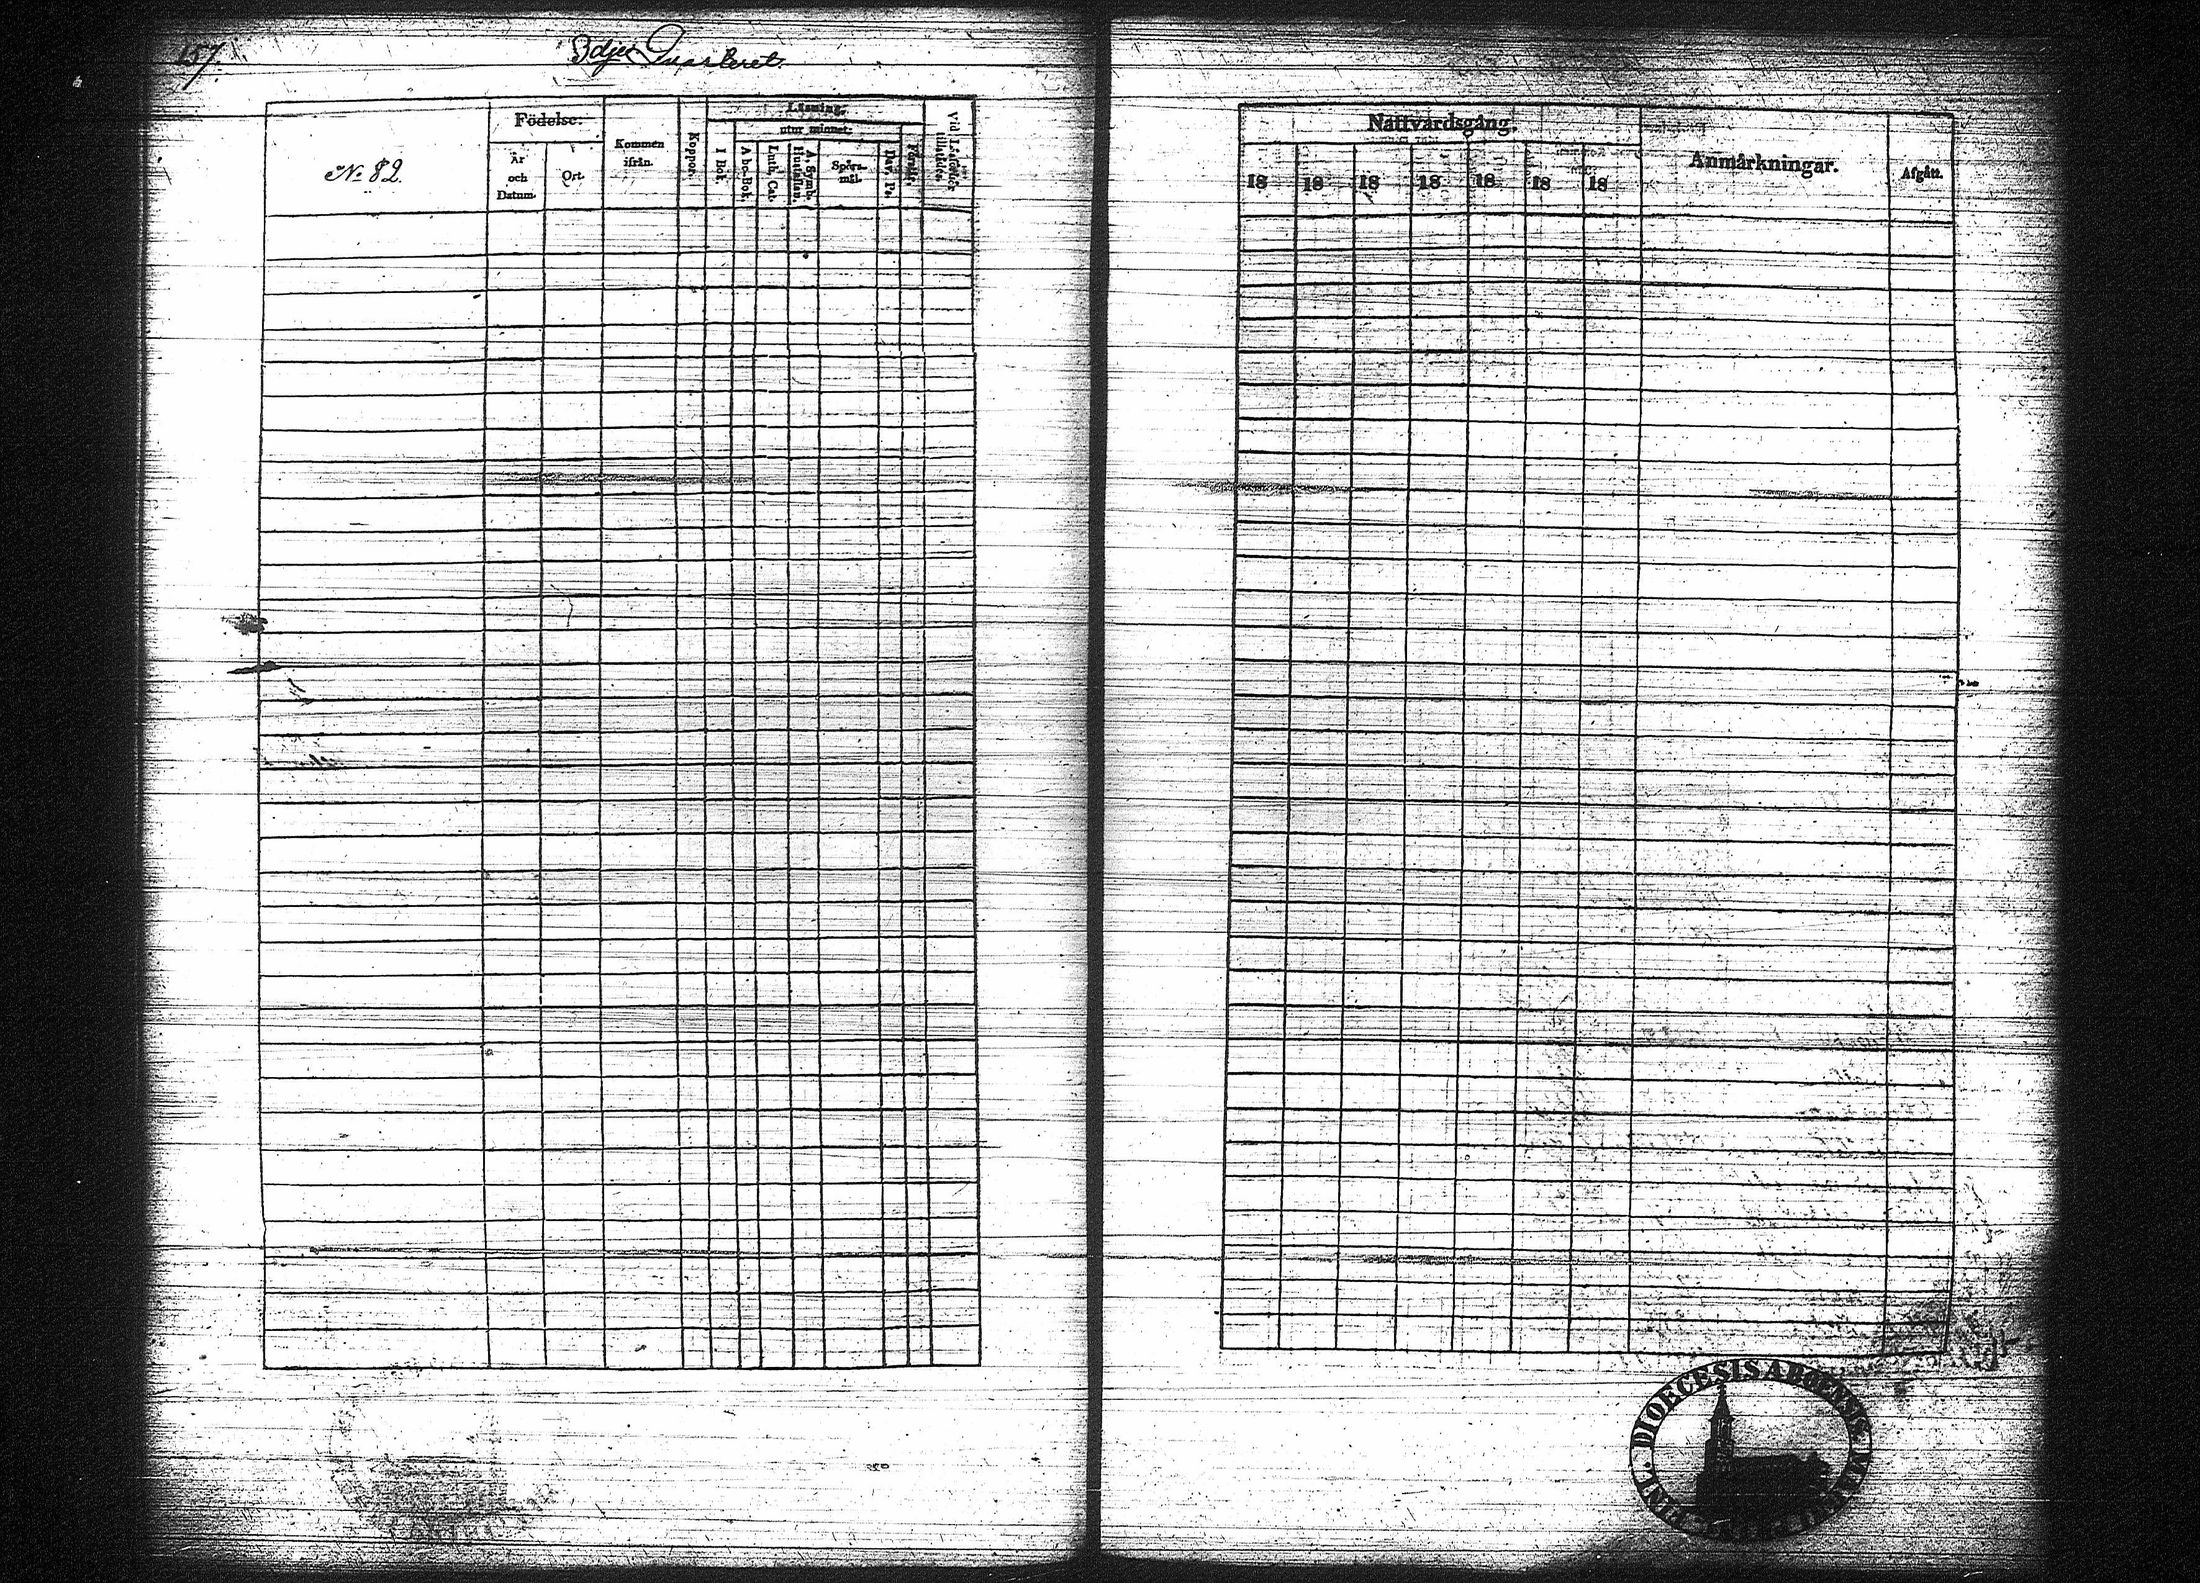 157.
3dje Quarteret.
No 82.
Födelse:
År
och
Datum.
Ort.
Kommen
ifrån.
Koppor.
Läsning.
utur minnet:
I Bok.
A bc-Bok.
Luth. Cat.
A. Symb.
Hustaflan.
Spörs-
mål.
Dav. Ps.
Förstår.
Nattvardsgång.
18 18 18 18 18 18 18
Anmärkningar.
Afgått.
DIOECESIS ABOENSIS